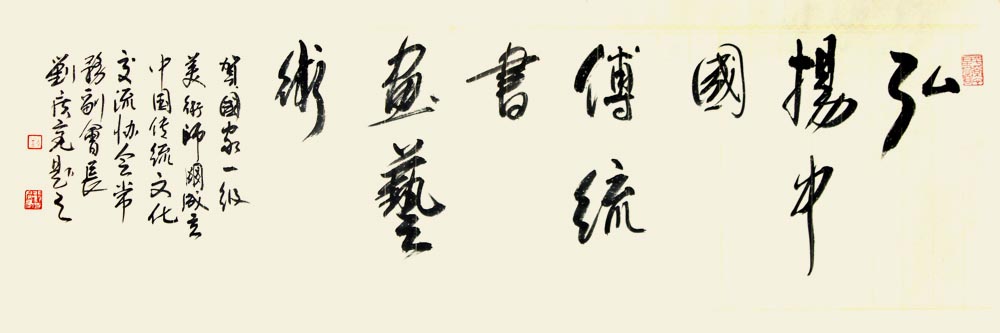 弘
揚中
國
傳統
書
畫藝
術
賀國家一级
美術師網成立
中国传统文化
交流协会常
務副會長
劉 亮題